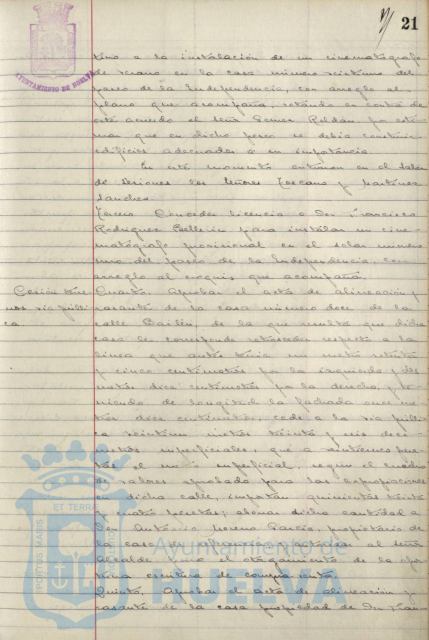 21
AYUNTAMIENTO DE HUELVA
tino a la instalación de un cinematógrafo
de verano en la casa número veintiuno del
paseo de la Independencia, con arreglo al
plano que acompaña, votando en contra de
este acuerdo el señor Roldán, por esti-
mar que en dicho paseo se debía construir
edificios adecuados a su importancia.
En este momento entraron en el salón
de sesiones los señores Toscano y Martínez
Sánchez.
Tercero. Conceder licencia a Don Francisco
Rodríguez para instalar un cine-
matógrafo provisional en el solar número
uno del paseo de la Independencia, con
arreglo al croquis que acompaña.
Cesión terre-
nos vía públi-
ca
Cuarto. Aprobar el acta de alineación y
rasante de la casa número doce de la
calle Bailén, de la que resulta que dicha
casa le corresponde retroceder respecto a la
línea que antes tenía un metro setenta
y cinco centímetros por la izquierda y dos
metros diez centímetros por la derecha, y te-
niendo de longitud la fachada once me-
tros diez centímetros, cede a la vía públi-
ca veintiún metros treinta y seis decí-
metros superficiales, que a veinticinco pese-
tas el metro superficial, según el cuadro
de valores aprobado para las expropiaciones
en dicha calle, importan quinientas treinta
y cuatro pesetas; abonar dicha cantidad a
Don Antonio Moreno García, propietario de
la casa de referencia, y autorizar al señor
Alcalde para el otorgamiento de la opor-
tuna escritura de compraventa.
Quinto. Aprobar el acta de alineación y
rasante de la casa propiedad de Don Fran-
PORTUS MARIS ET TERRAE
Ayuntamiento de
HUELVA